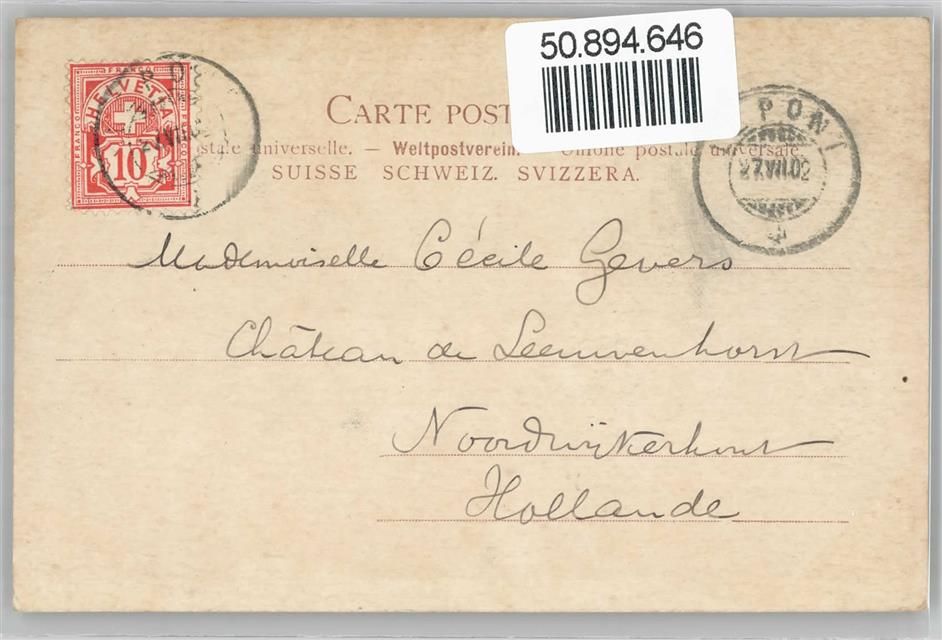 50.894.646
CARTE POST
Weltpostverein. — Unione postale universale
SUISSE SCHWEIZ. SVIZZERA.
FRANCO
HELVETIA
FRANCO
10
PONT
27.VII.02
Mademoiselle Cécile Gevers
Château de Leeuwenhorst
Noordwijkerhout
Hollande